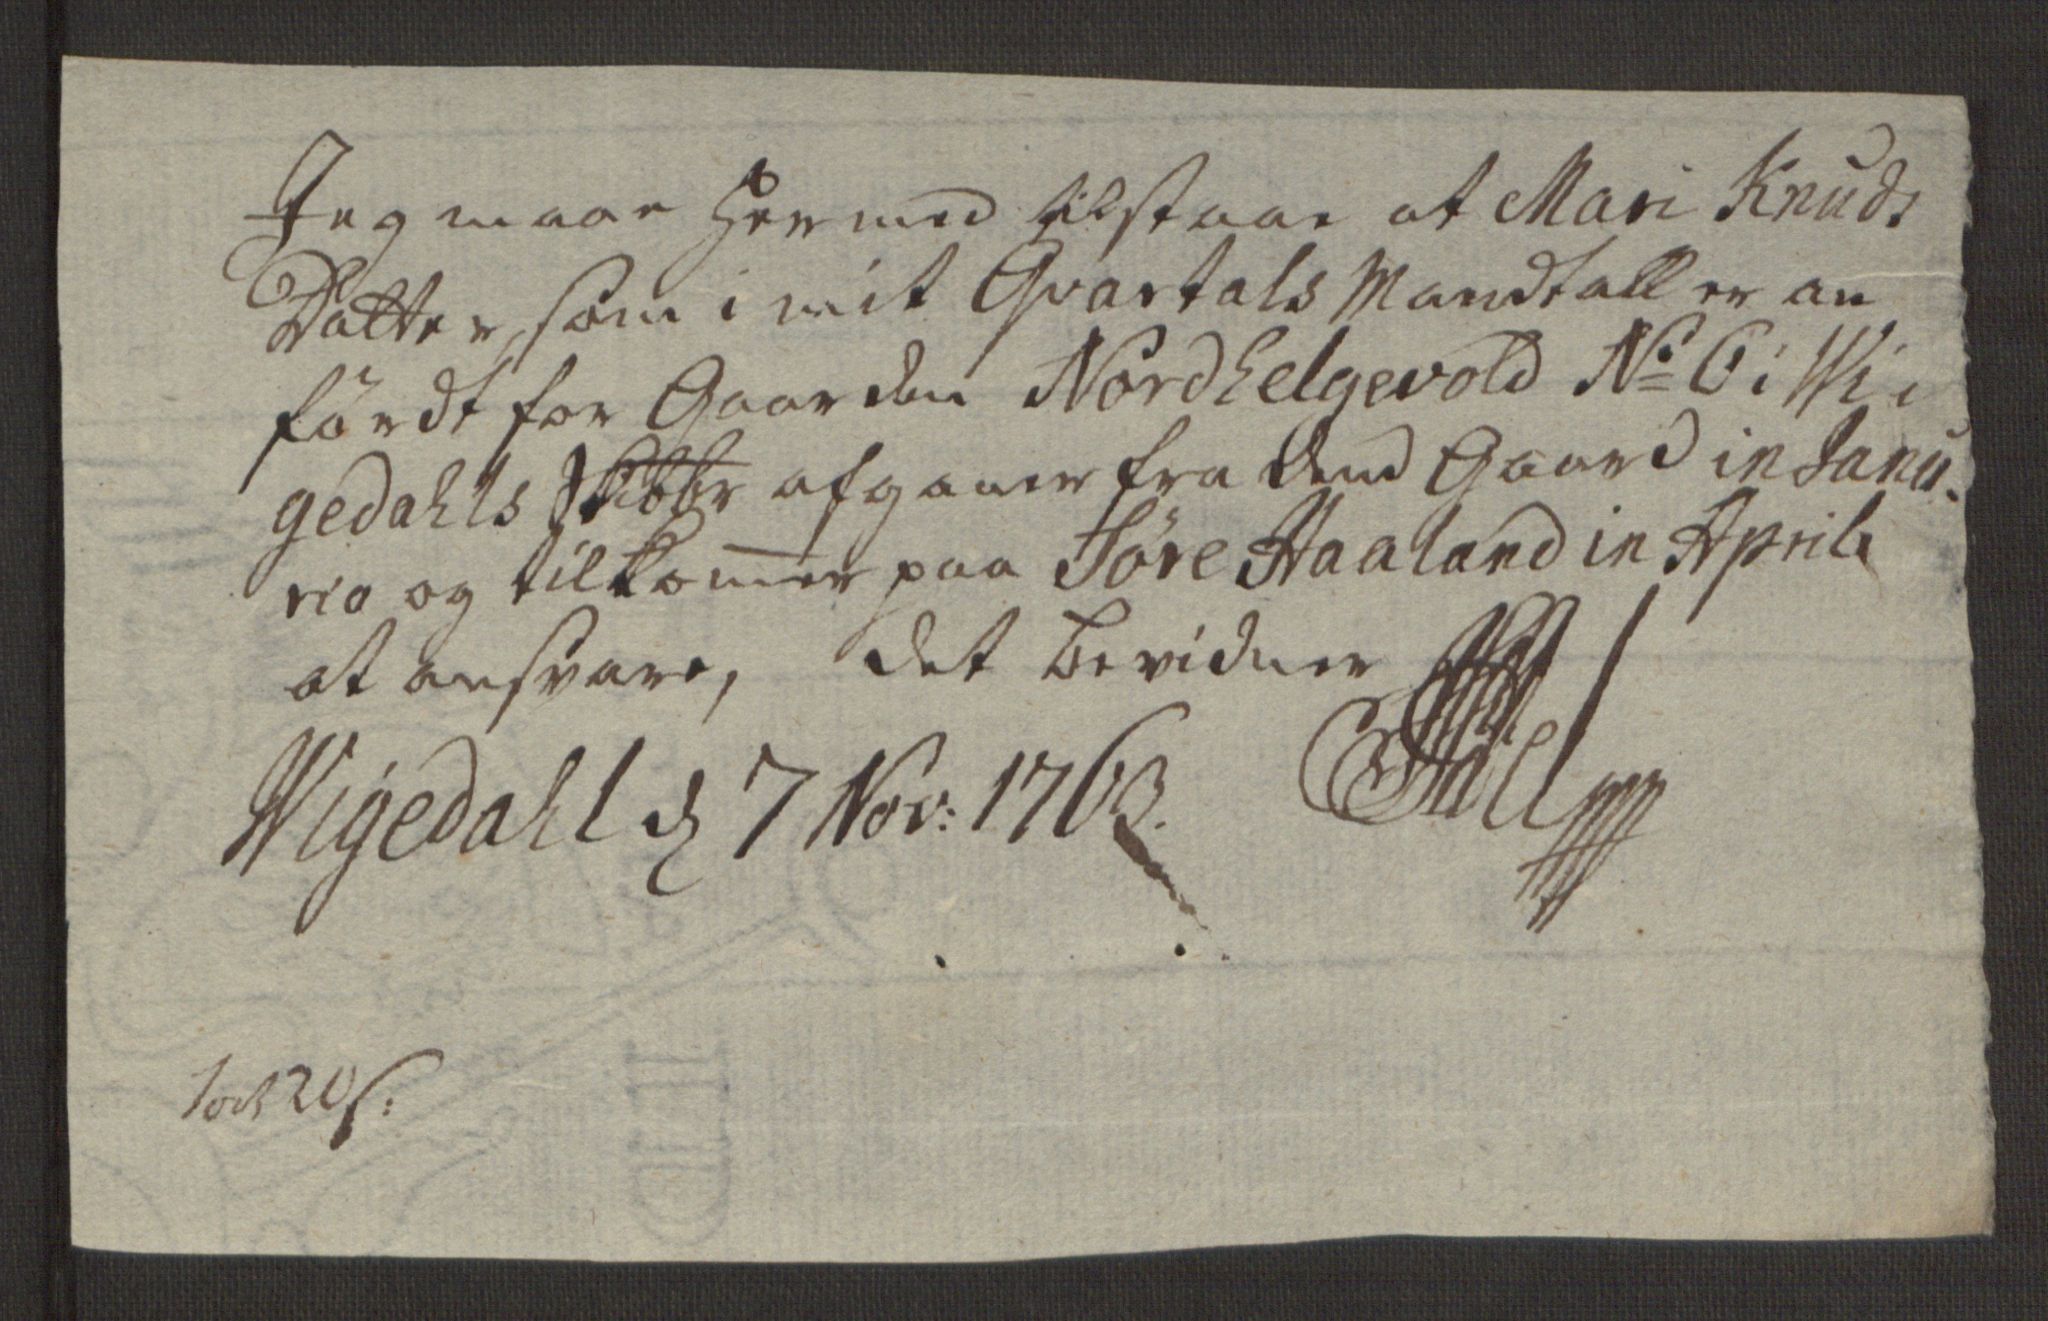 Jeg maae Hermed tilstaae at Mari Knuds
Datter, som i mit Qvartals Mandtall er an
fördt for Gaarden Nordhelgevold No 6 i Wi
gedahls Skibbr afgaaer fra dend Gaard in Janu-
rio og tilkomer paa Söre Haaland in Aprili
at ansvare, det bevidner
Wigedahl d 7 Nov: 1763.